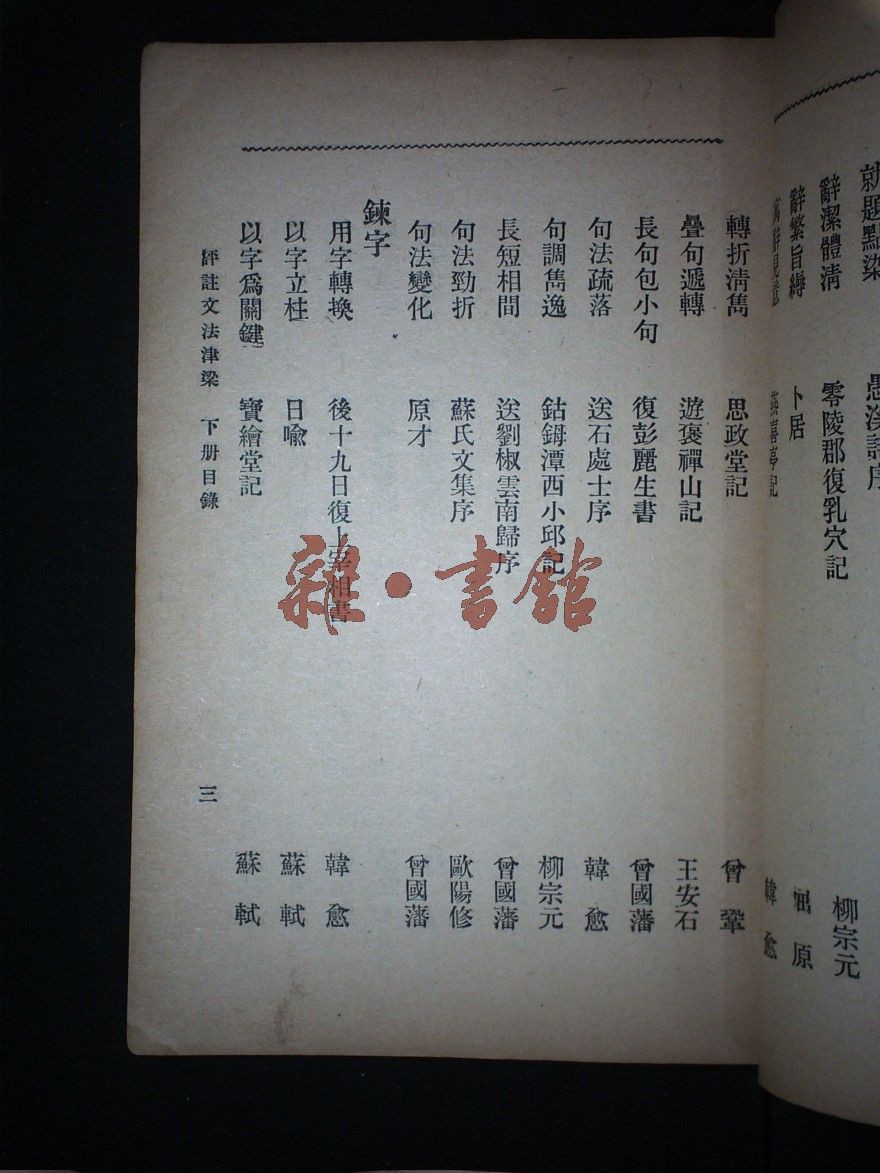 就題點染 愚溪詩序
辭潔體清 零陵郡復乳穴記 柳宗元
辭繁旨縟 卜居 屈原
喜亭記 韓愈
轉折淸雋 思政堂記 曾鞏
疊句遞轉 遊褒禪山記 王安石
長句包小句 復彭麗生書 曾國藩
句法疏落 送石處士序 韓愈
句調雋逸 鈷鉧潭西小邱記 柳宗元
長短相間 送劉椒雲南歸序 曾國藩
句法勁折 蘇氏文集序 歐陽修
句法變化 原才 曾國藩
鍊字
用字轉換 後十九日復上宰相書 韓愈
以字立柱 日喩 蘇軾
以字爲關鍵 寶繪堂記 蘇軾
評註文法津梁 下册目錄 三
雜·書館